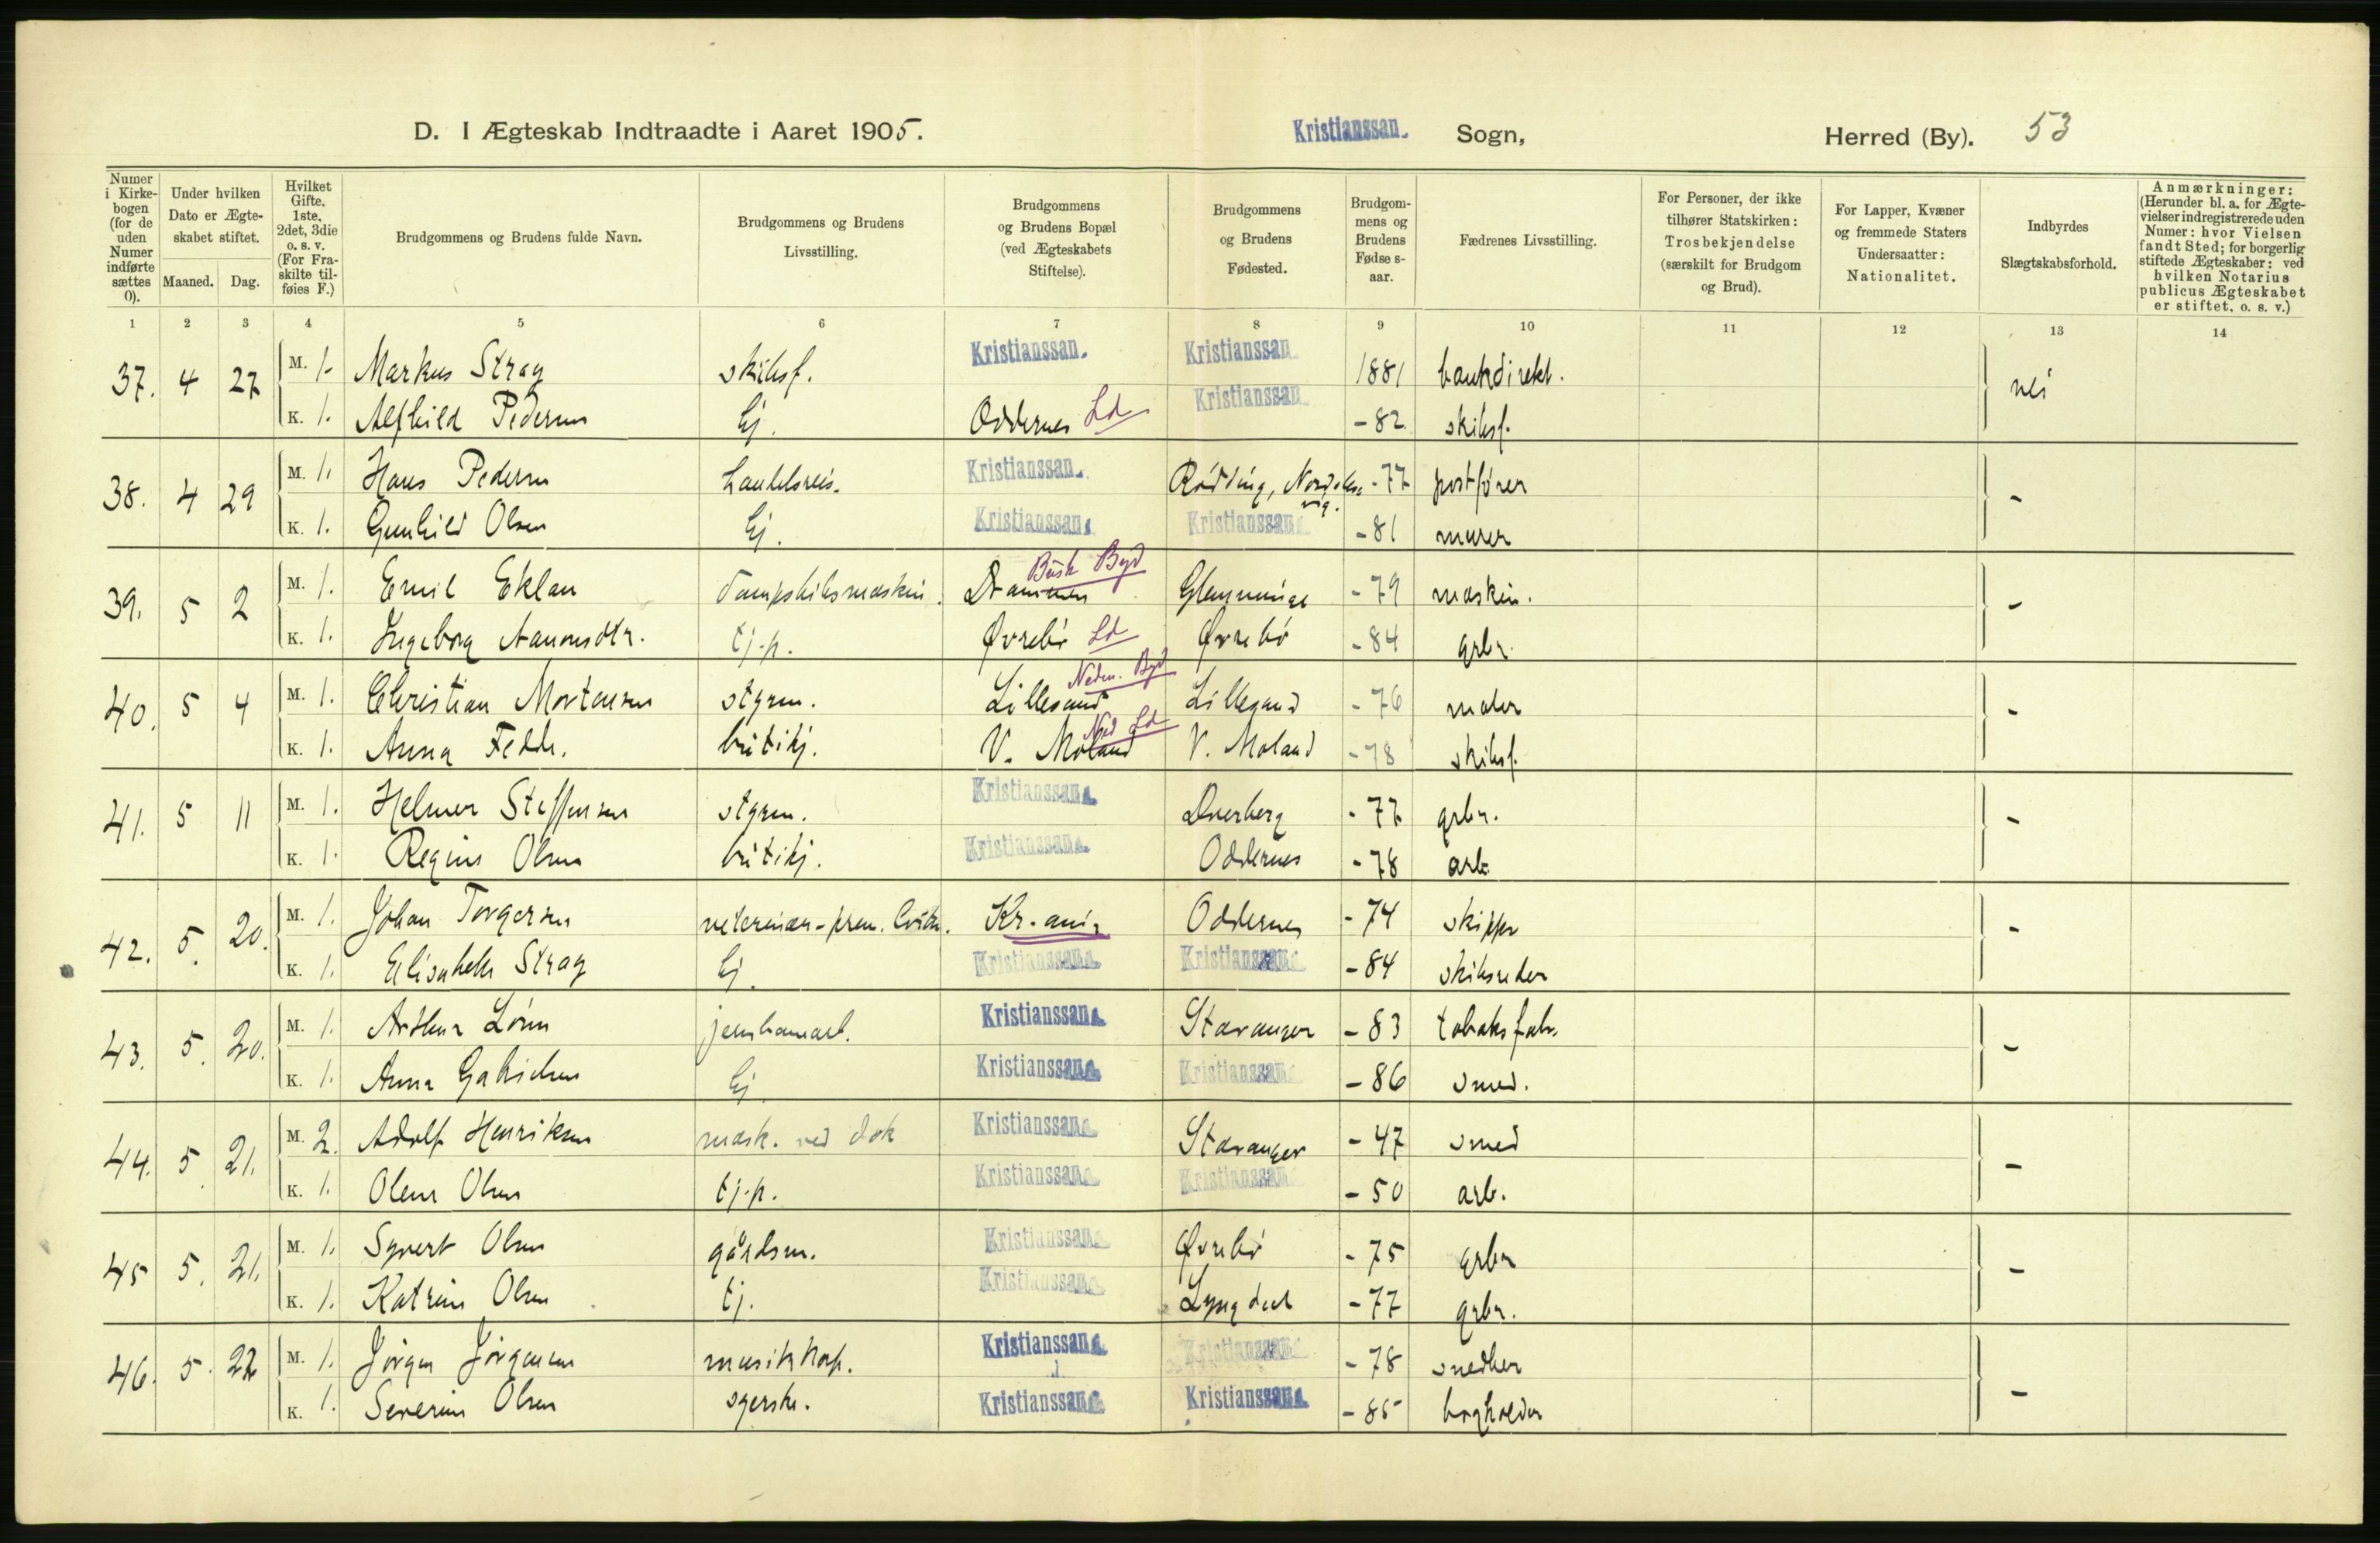 D. I Ægteskab Indtraadte i Aaret 1905.
Kristianssan. Sogn,
Herred (By). 53
Numer i Kirkebogen (for de uden Numer indførte sættes 0).
Under hvilken Dato er Ægteskabet stiftet.
Maaned. Dag.
Hvilket Gifte. 1ste, 2det, 3die o. s. v. (For Fraskilte tilføies F.)
Brudgommens og Brudens fulde Navn.
Brudgommens og Brudens Livsstilling.
Brudgommens og Brudens Bopæl (ved Ægteskabets Stiftelse).
Brudgommens og Brudens Fødested.
Brudgommens og Brudens Fødselsaar.
Fædrenes Livsstilling.
For Personer, der ikke tilhører Statskirken: Trosbekjendelse (særskilt for Brudgom og Brud).
For Lapper, Kvæner og fremmede Staters Undersaatter: Nationalitet.
Indbyrdes Slægtskabsforhold.
Anmærkninger: (Herunder bl. a. for Ægtevielser indregistrerede uden Numer: hvor Vielsen fandt Sted; for borgerlig stiftede Ægteskaber: ved hvilken Notarius publicus Ægteskabet er stiftet, o. s. v.)
1 2 3 4 5 6 7 8 9 10 11 12 13 14
37. 4 27 M. 1. Markus Stray skibsf. Kristianssan. Kristianssan 1881 bankdirekt. nei
K. 1. Alfhild Pedersen Ej. Oddernes Ld Kristianssan - 82 skibsf.
38. 4 29 M. 1. Hans Pedersen handelsreis. Kristianssan. Rödding, - 77 postfører -
K. 1. Gunhild Olsen Ej. Kristianssan. Kristianssan - 81 murer
39. 5 2 M. 1. Emil Eklan dampskibsmaskin. Drammen Busk Byd Glemminge - 79 maskin. -
K. 1. Ingeborg Aanonsdtr. tj.p. Øvrebö Ld Øvrebö - 84 grbr.
40. 5 4 M. 1. Christian Mortensen styrm. Lillesand Neden. Byd Lillesand - 76 maler -
K. 1. Anna Feddr. butikj. V. Moland Ned Ld V. Moland - 78 skibsf.
41. 5 11 M. 1. Helmer Steffensen styrm. Kristianssand Dverberg - 77 grbr. -
K. 1. Regine Olsen butikj. Kristianssand Oddernes - 78 arb.
42. 5. 20. M. 1. Johan Torgersen veterinær-prem. Kr.ania Oddernes - 74 skipper -
K. 1. Elisabeth Stray Ej. Kristianssand Kristianssand - 84 skibsreder
43. 5. 20. M. 1. Arthur Lönn jernbanearb. Kristianssand Stavanger - 83 tobaksfabr. -
K. 1. Anna Gabrielsen Ej Kristianssand Kristianssand - 86 smed.
44. 5. 21. M. 2. Adolf Henriksen mask. ved dok Kristianssand Stavanger - 47 smed -
K. 1. Olene Olsen tj.p. Kristianssand Kristianssand - 50 arb.
45 5. 21. M. 1. Syvert Olsen gårdsm. Kristianssand Øvrebö - 75 grbr -
K. 1. Katrine Olsen tj. Kristianssand Lyngdal - 77 grbr.
46. 5. 22 M. 1. Jörgen Jörgensen musikkorp. Kristianssand Kristianssand - 78 snedker -
K. 1. Severine Olsen syerske. Kristianssand Kristianssand - 85 bogholder